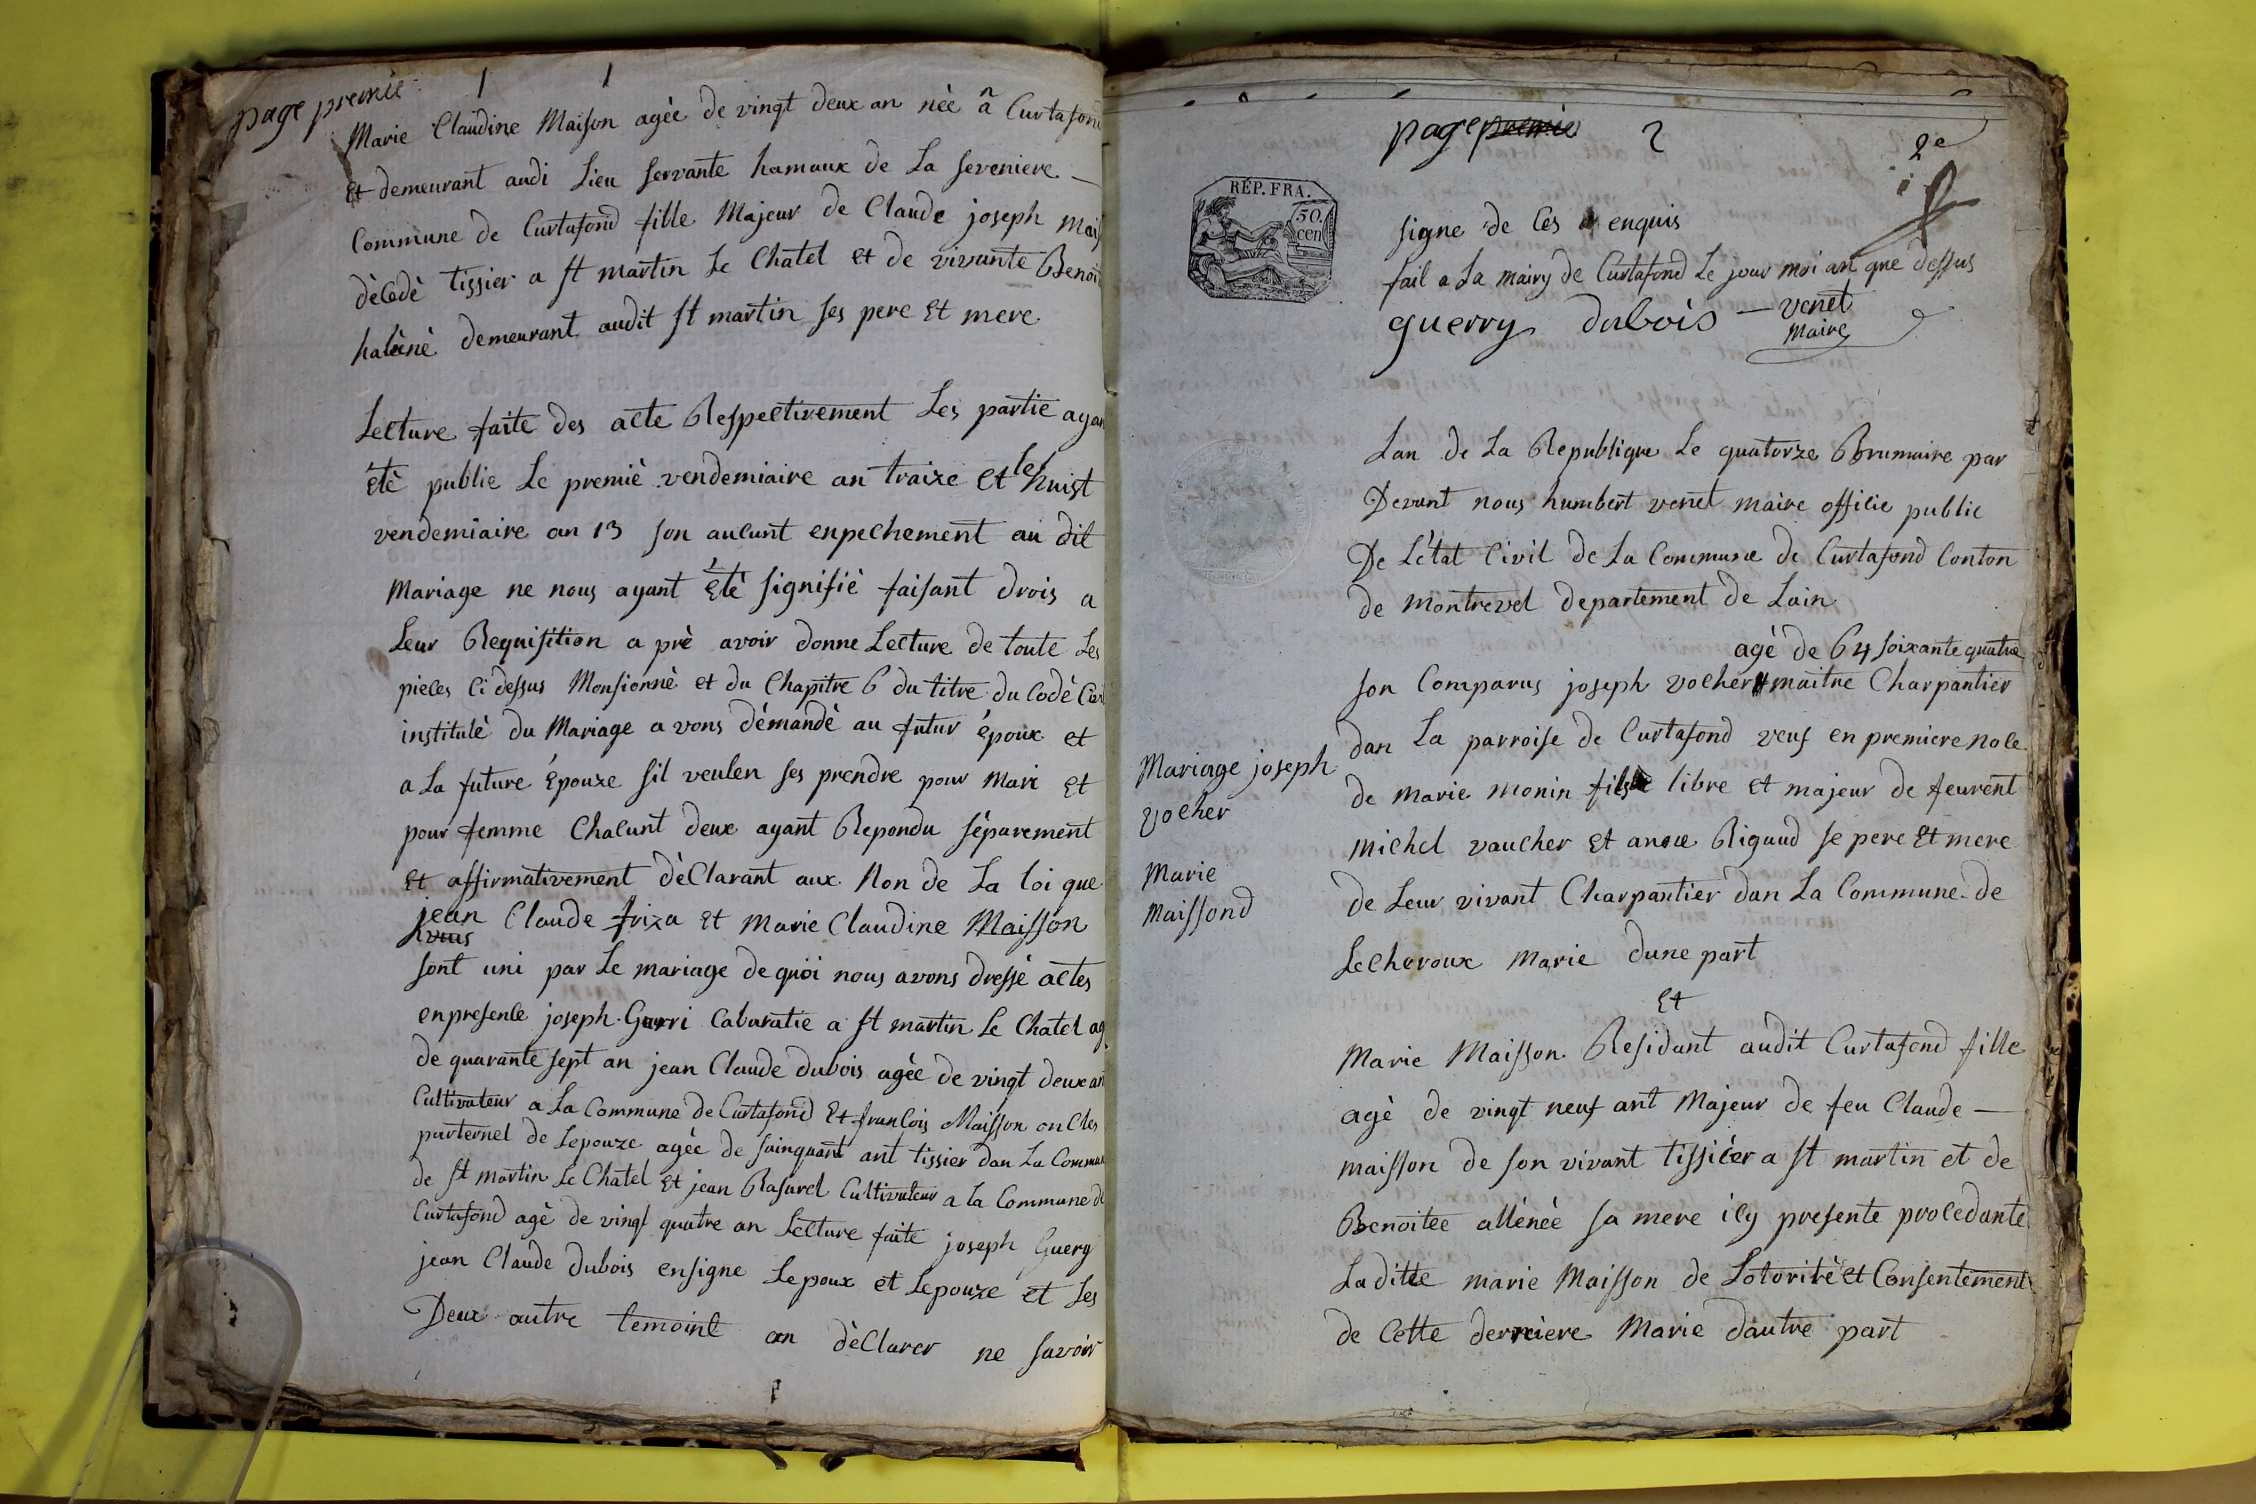 page premiè
1 1
Marie Claudine Maison agèe de vingt deux an nèe a Curtafond
Et demeurant audi Lieu servante hamaux de La sereniere
Commune de Curtafond fille Majeur de Claude joseph mais
dècèdè tissier a st martin Le Chatel et de vivante Benoi
halènè demeurant audit st martin ses pere Et mere
Lecture faite des acte Respectivement Les partie ayan
étè publie Le premiè vendemiaire an traize et le huist
vendemiaire an 13 son aucunt enpechement au dit
Mariage ne nous ayant étè signifiè faisant drois a
Leur Requisition a prè avoir donne Lecture de toute Les
pieces Ci dessus Monsionnè et du Chapitre 6 du titre du Codè Civi
institulè du Mariage a vons dèmandè au futur époux et
a La future Épouze sil veulen ses prendre pour Mari Et
pour femme Chacunt deux ayant Repondu sèparement
Et affirmativement dèClarant aux Non de La loi que
jean Claude friza Et Marie Claudine Maisson
sont uni par Le mariage de quoi nous avons dressè actes
enpresence joseph Guerri Cabaratie a st martin Le Chatel ag
de quarante sept an jean Claude dubois agèe de vingt deux an
Cultivateur a La Commune de Curtafond Et francois Maisson onCles
parternel de Lepouze agèe de sainquant ant tissier dan La Commun
de st martin Le Chatel Et jean Rasurel Cultivateur a la Commune de
Curtafond agè de vingt quatre an Lecture faite joseph Guery
jean Claude dubois ensigne Lepoux et Lepouze et Les
Deux autre temoint on dèClarer ne savoir
page premiè 2
2e
RÉP. FRA.
50.
cen
signe de Ces enquis
fait a La mairy de Curtafond Le jour moi an que dessus
guerry dubois venet
Maire
Lan de La Republique Le quatorze Brumaire par
Devant nous humbert venet maire officie public
De Létat Civil de La Commune de Curtafond Conton
de Montrevel departement de Lain
agè de 64 soixante quatre
son Comparus joseph vocher maitre Charpantier
dan La parroise de Curtafond veuf en premiere noce
de marie monin fils libre et majeur de feurent
michel vaucher Et anne Rigaud se pere Et mere
de Leur vivant Charpantier dan La Commune de
Lecheroux Marie dune part
Mariage joseph
vocher
Marie
Maissond
Et
Marie Maisson Residant audit Curtafond fille
agè de vingt neuf ant Majeur de feu Claude
maisson de son vivant tissièr a st martin et de
Benoitee allénèe sa mere icy presente procedante
La ditte marie Maisson de Lotoritè et Consentement
de Cette derniere Marie dautre part